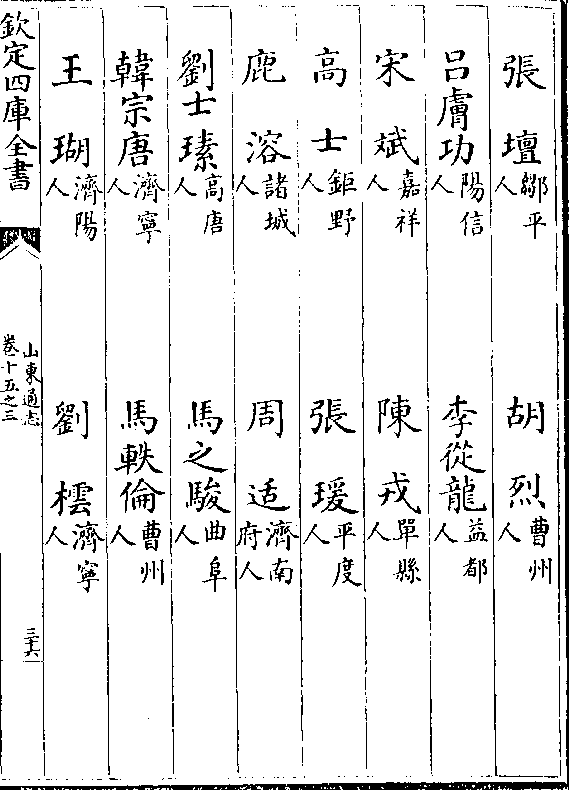 張壇鄒平人　胡烈曹州人
呂膚功陽信人　李從龍益都人
宋斌嘉祥人　陳戎單縣人
高士鉅野人　張瑗平度人
鹿溶諸城人　周适濟南府人
劉士瑧高唐人　馬之駿曲阜人
韓宗唐濟寧人　馬軼倫曹州人
王瑚濟陽人　劉橒濟寧人
欽定四庫全書
山東通志
卷十五之三
三十六